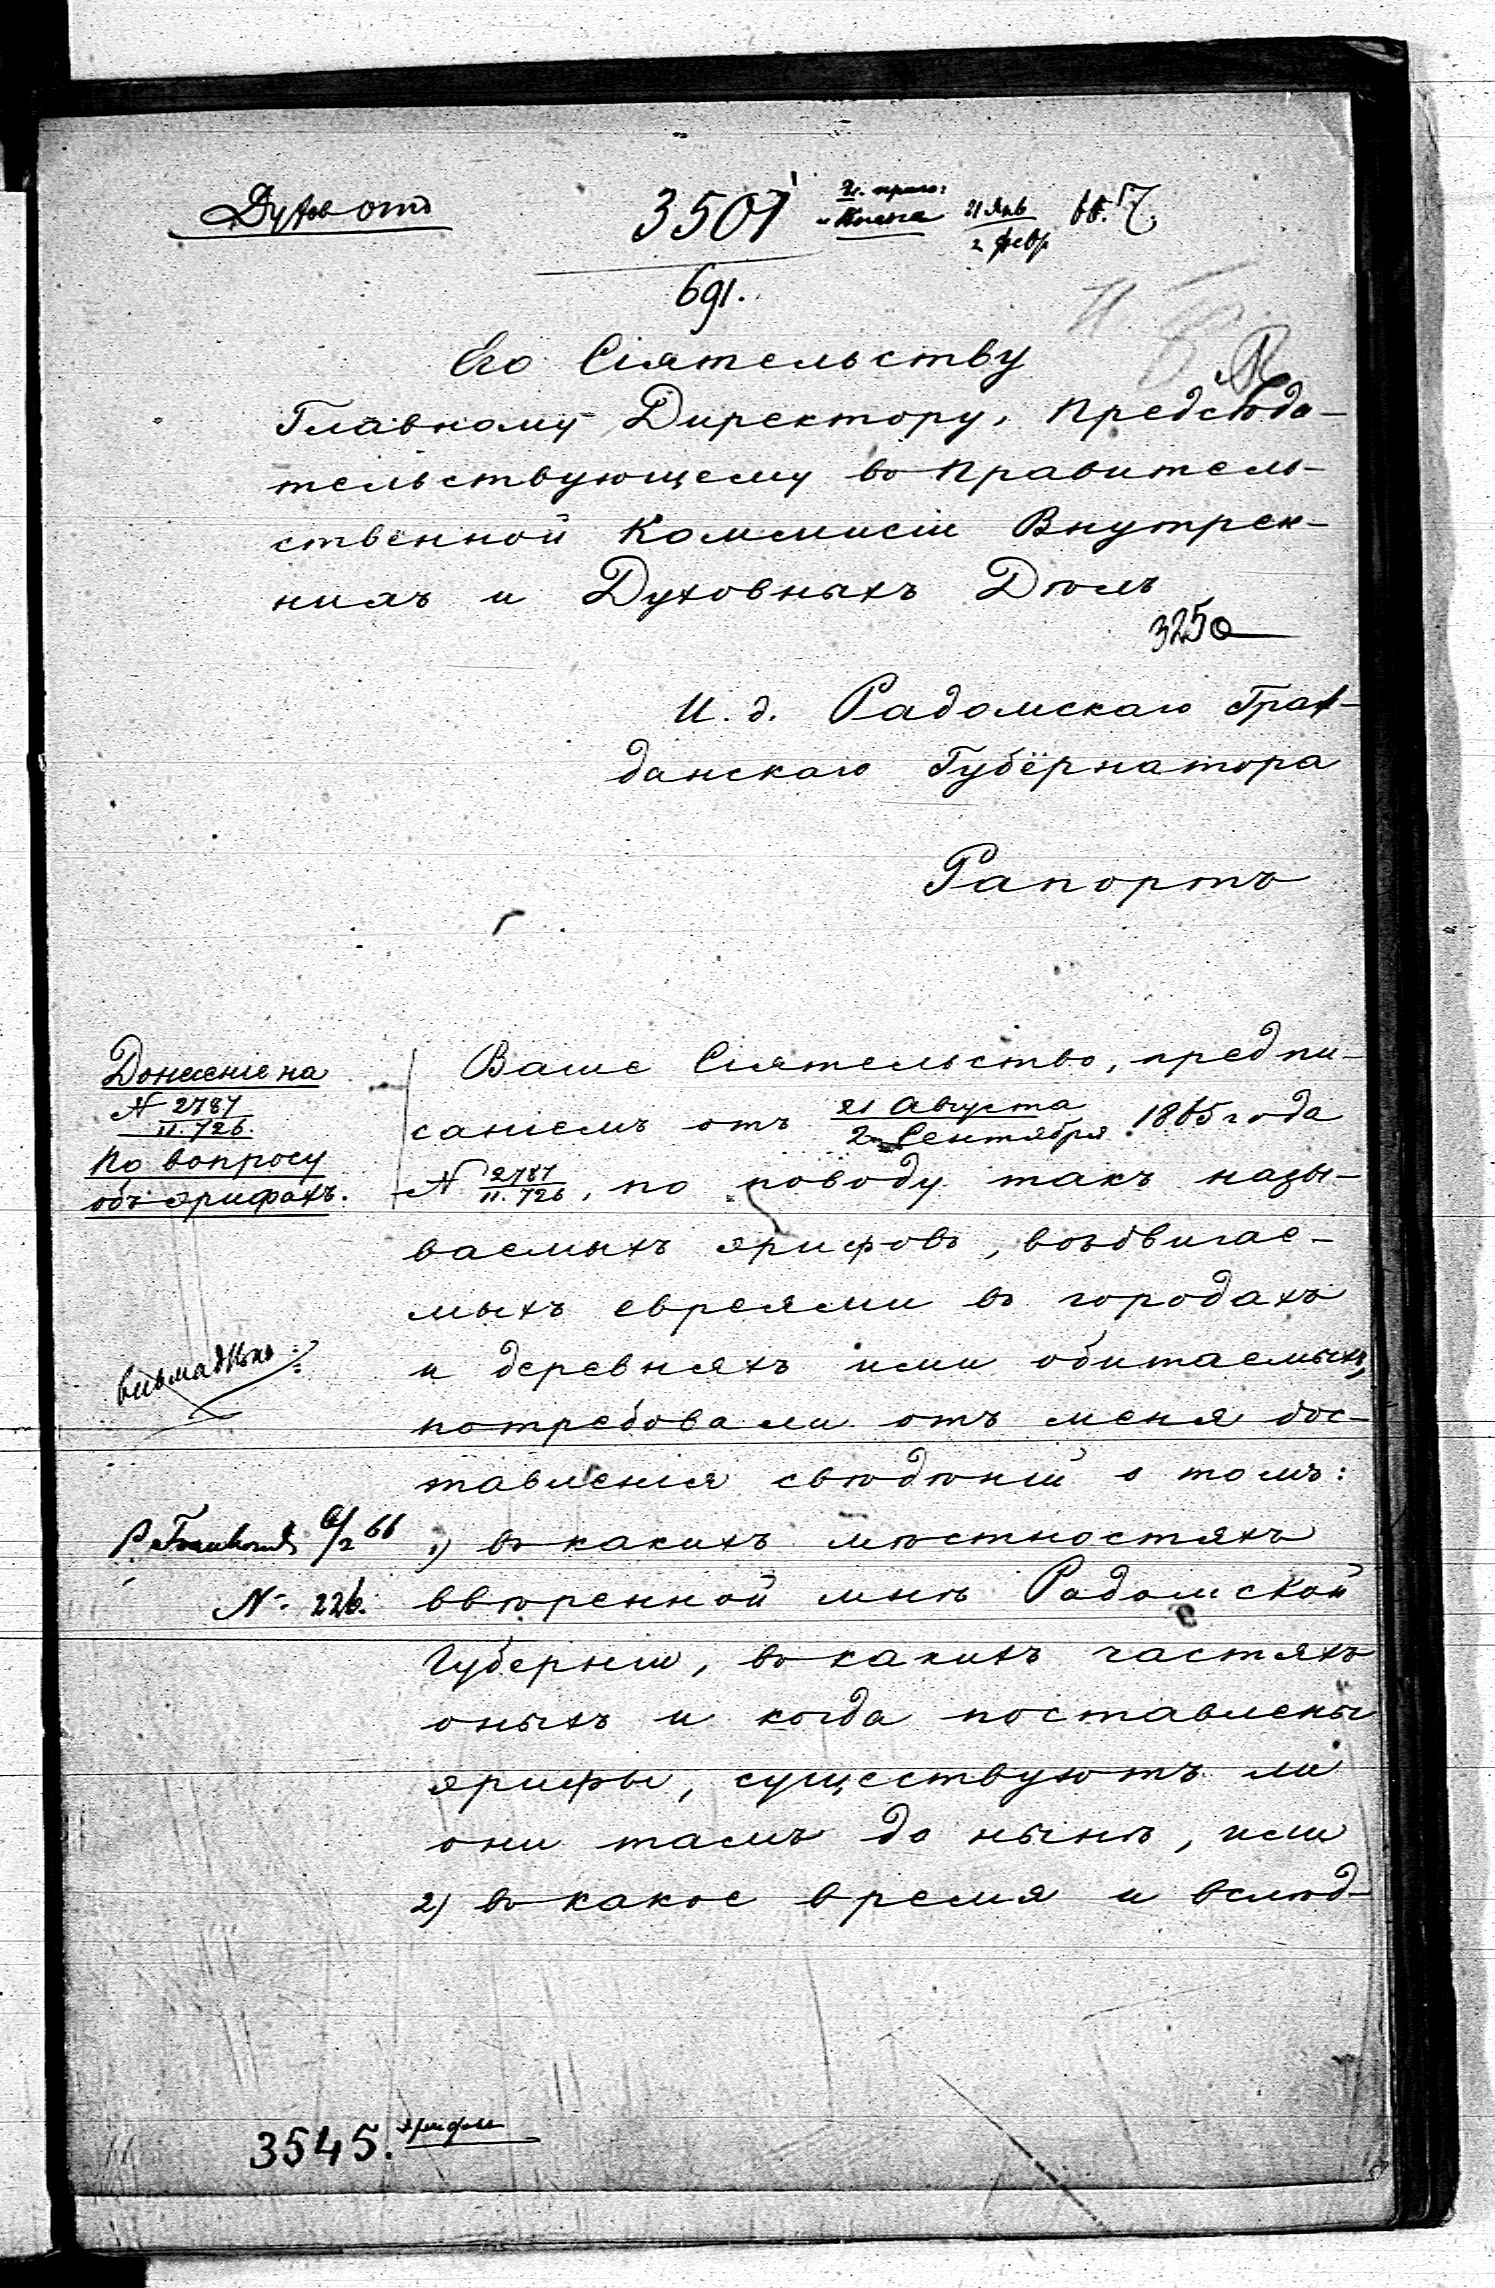 Духов отд
3507
691.
21 Янв
2 февр
66.
Его Сіятельству
Главному Директору, Предсѣда-
тельствующему въ Правитель-
ственной Коммисіи Внутрен-
нихъ и Духовныхъ Дѣлъ
3250
И. д. Радомскаго Граж-
данскаго Губернатора
Рапортъ
Донесеніе на
N 2787
11.726.
По вопросу
объ эрифахъ.
Ваше Сіятельство, предпи-
саніемъ отъ 21 Августа
2 Сентября 1865 года
N 2787
11.726, по поводу такъ назы-
ваемыхъ эрифовъ, воздвигае-
мыхъ евреями въ городахъ
и деревняхъ ими обитаемыхъ,
потребовали отъ меня дос-
тавленія свѣдѣній о томъ:
6/2 66
N. 226.
1) въ какихъ мѣстностяхъ
ввѣренной мнѣ Радомской
Губерніи, въ какихъ частяхъ
оныхъ и когда поставлены
эрифы, существуютъ ли
они тамъ до нынѣ, или
2) въ какое время и вслѣд-
3545. эрифы